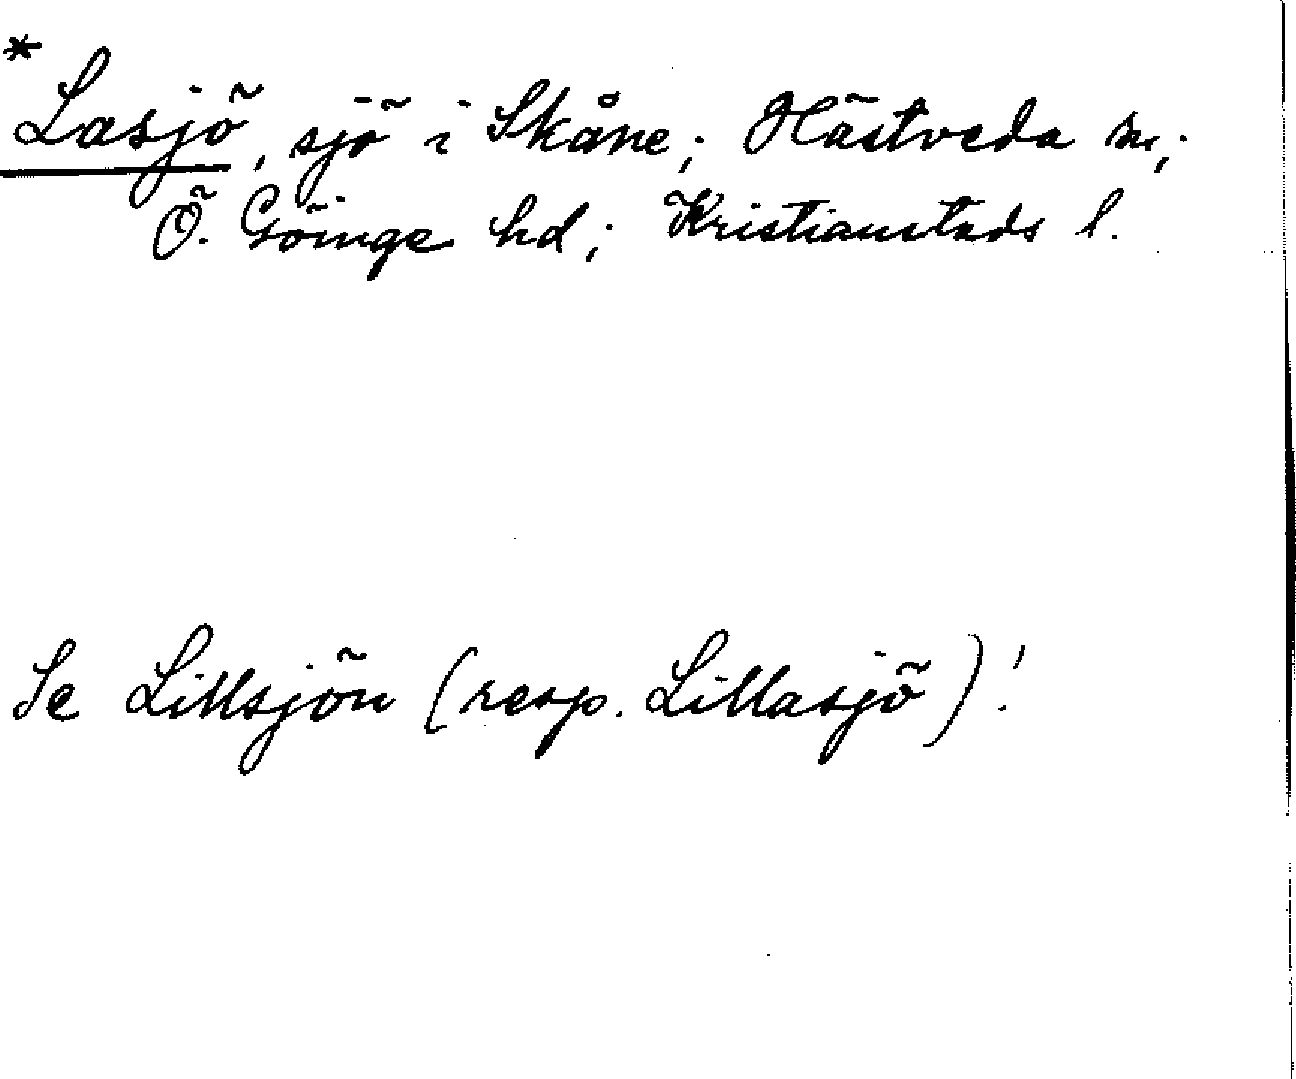 * Lasjö, sjö i Skåne; Hästveda sn;
Ö. Göinge hd; Kristianstads l.
Se Lillsjön (resp. Lillasjö)!